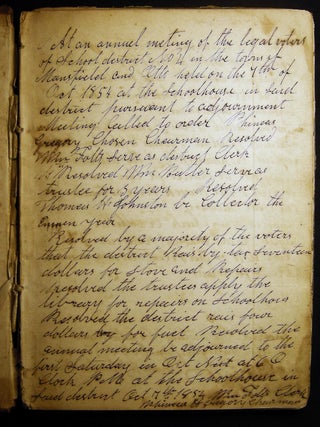 At an annual meeting of the legal voters
of School district No 4 in the town of
Mansfield and Otto held on the 7th of
Oct 1854 at the Schoolhouse in Said
district pursuant to adjournment
Meeting Called to order Phineas
Gregory Chosen Chearman Resolved
Wm Folts Serve as district Clerk
Resolved Wm Butler Serve as
trustee for 3 years Resolved
Thomas H Johnston be Collector the
year
Resolved by a majority of the voters
that the district Rais by tax Seventeen
dollars for Stove and Repairs
Resolved the trustees apply the
library for repaires on Schoolhous
Resolved the destrict rais four
dollars for fuel Resolved the
annual meeting be adjourned to the
first Saturday in Oct Next at 6 O
Clock at the Schoolhouse in
Said district Oct 7th 1854 Wm Folts Clerk
Phineas H Gregory Chearman